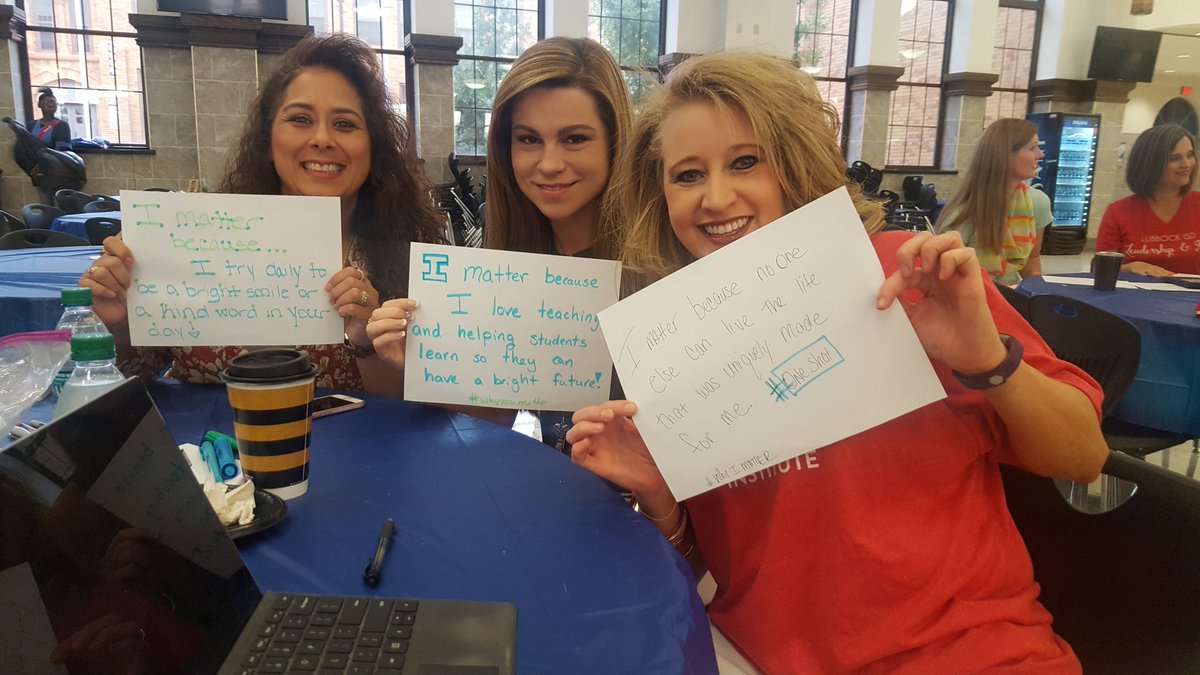 I matter
because...
I try daily to
be a bright smile or
a kind word in your
day!
I matter because
I love teaching
and helping students
learn so they can
have a bright future!
#whyyoumatter
I matter because no one
else can live the life
that was uniquely made
for me. #OneShot
#Why I MATTER
INSTITUTE
LUBBOCK ISD
Leadership &